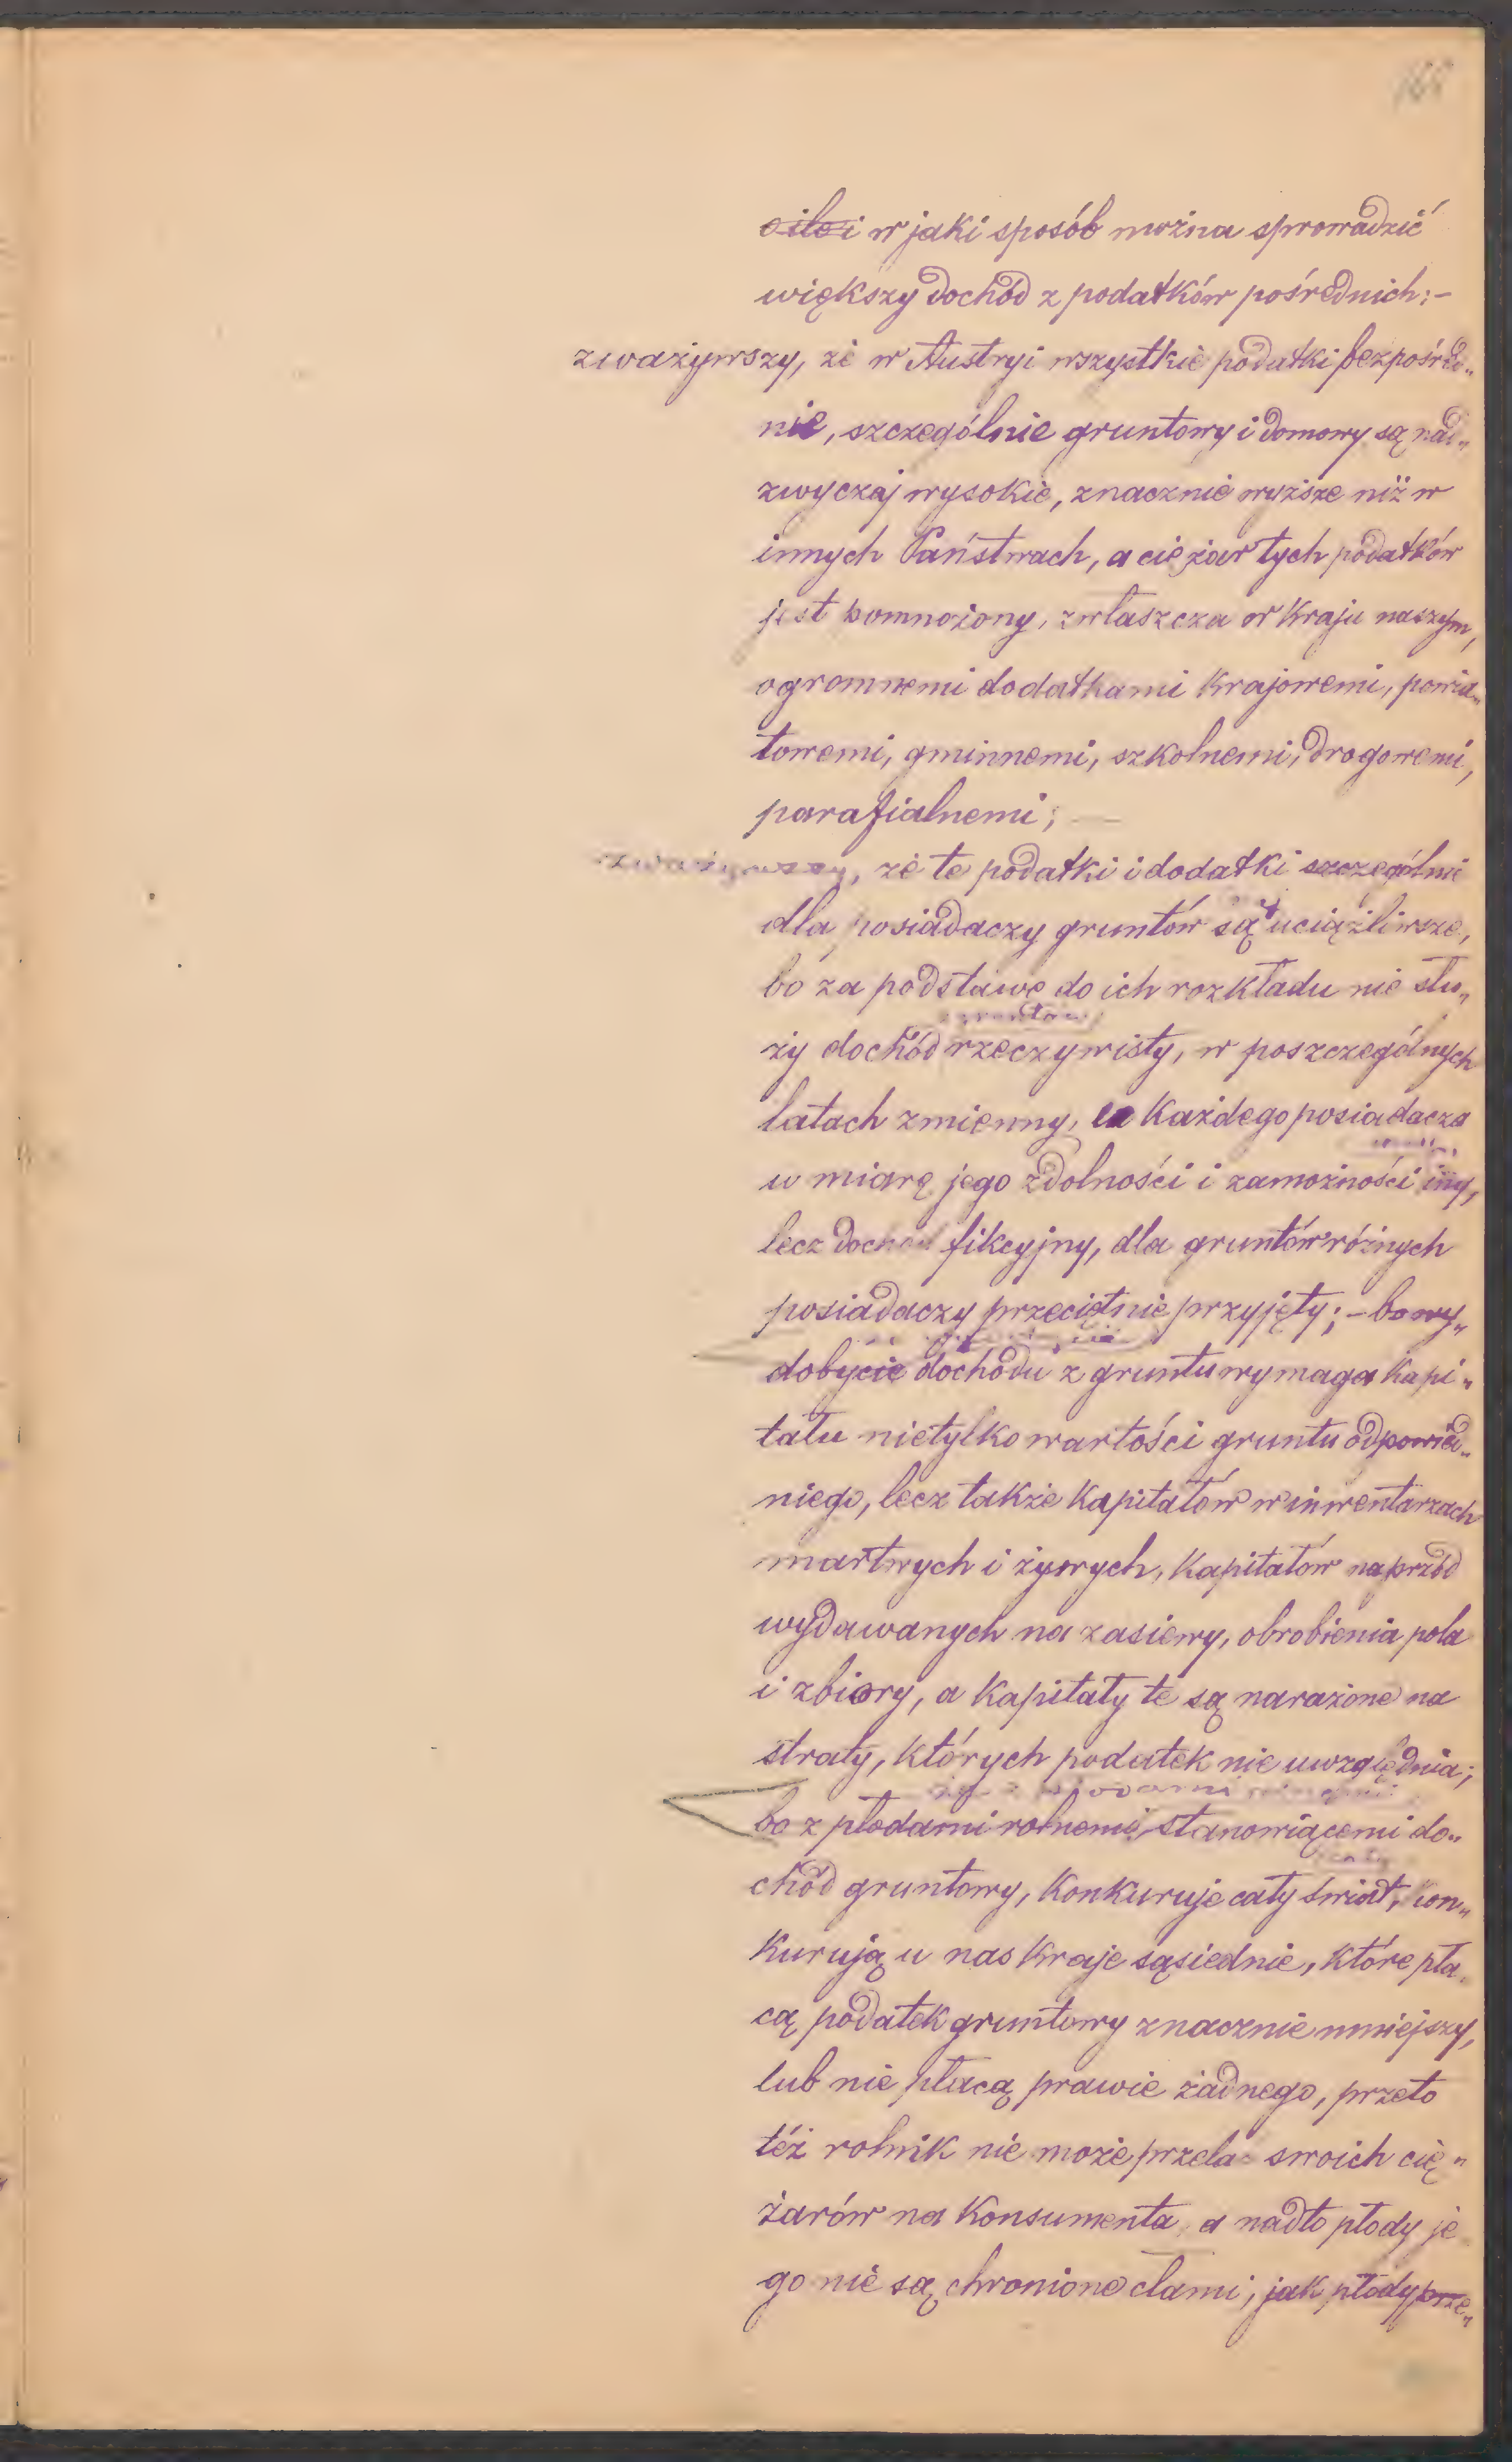 168
o ile i w jaki sposób można sprowadzić
większy dochód z podatków pośrednich; –
zważywszy, że w Austryi wszystkie podatki bezpośred„
nie, szczególnie gruntowy i domowy są nad„
zwyczaj wysokie, znacznie wyższe niż w
innych Państwach, a ciężar tych podatków
jest pomnożony, zwłaszcza w kraju naszym,
ogromnemi dodatkami krajowemi, powia„
towemi, gminnemi, szkolnemi, drogowemi,
parafialnemi; —
zważywszy, że te podatki i dodatki szczególnie
dla posiadaczy gruntów są uciążliwsze,
bo za podstawę do ich rozkładu nie słu„
ży dochód rzeczywisty, w poszczególnych
latach zmienny, każdego posiadacza
w miarę jego zdolności i zamożności inny,
lecz dochód fikcyjny, dla gruntów różnych
posiadaczy przeciętnie przyjęty; – bo wy„
dobycie dochodu z gruntu wymaga kapi„
tału nietylko wartości gruntu odpowied„
niego, lecz także kapitałów w inwentarzach
martwych i żywych, kapitałów naprzód
wydawanych na zasiewy, obrobienia pola
i zbiory, a kapitały te są narażone na
straty, których podatek nie uwzględnia;
bo z płodami rolnemi, stanowiącemi do„
chód gruntowy, konkuruje cały świat, kon„
kurują u nas kraje sąsiednie, które pła„
cą podatek gruntowy znacznie mniejszy,
lub nie płacą prawie żadnego, przeto
też rolnik nie może przelać swoich cię„
żarów na konsumenta, a nadto płody je
go nie są chronione cłami, jak płody prze„